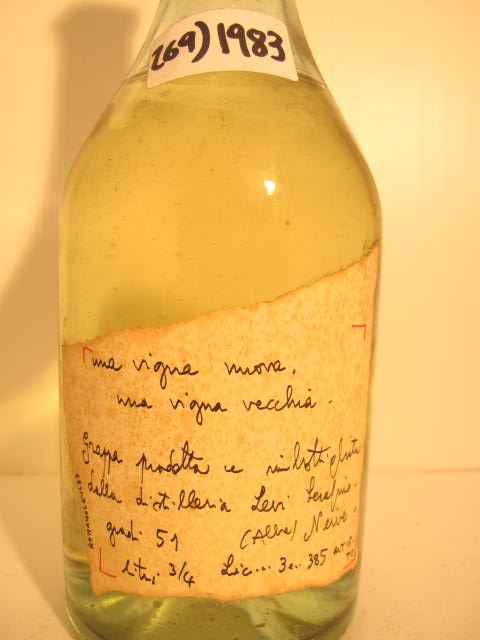 269) 1983
una vigna nuova,
una vigna vecchia.
Grappa prodotta e imbottigliata
dalla distilleria Levi Serafino.
gradi 51 (Alba) Neive.
litri 3/4 Lic... 3 385
ROMANOLEVI83